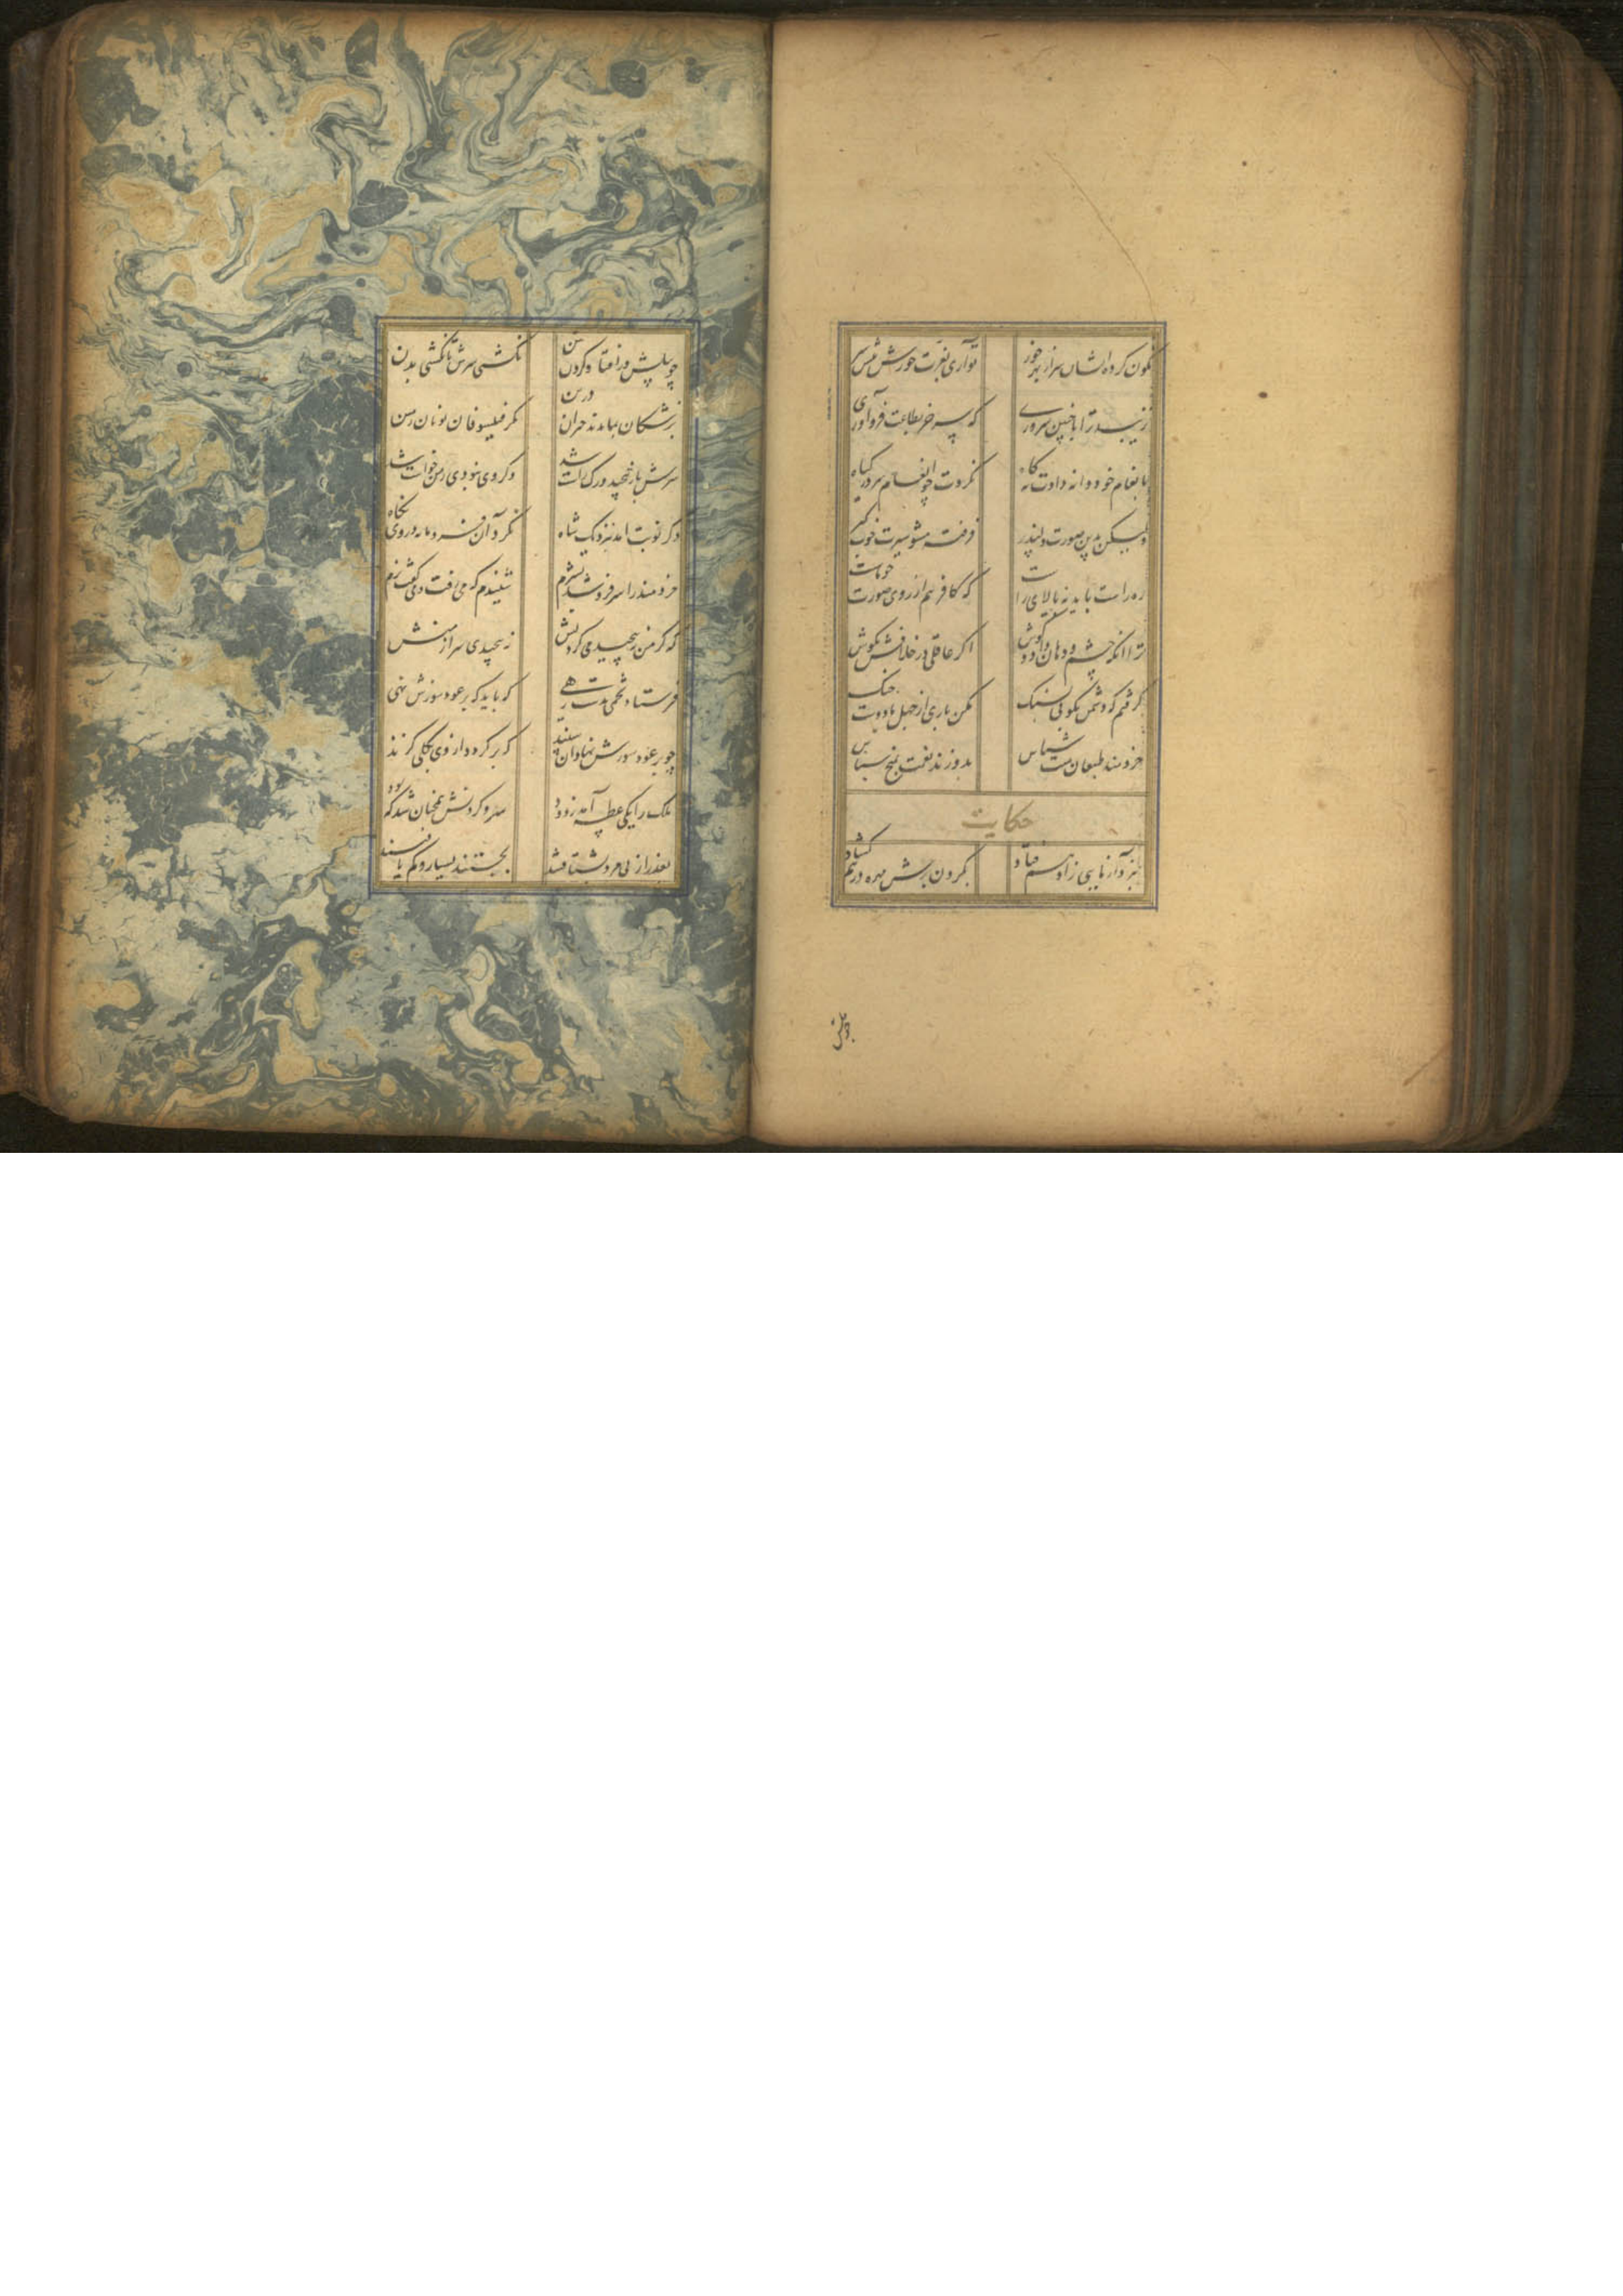 نکون کرده ایشان سر از بهر خور
تو آری بعزت خورش پیش سر
نزیبد ترا با چنین سروری
که سر جز بطاعت فرود آوری
بانعام خود دانه دادت نه کاه
نکردت چو انعام سر در کیاه
ولیکن بدین صورت دلپذیر
فرفته مشو سیرت خوب کیر
ره راست باید نه بالای راست
که کافر هم از روی صورت چو ماست
ترا انکه چشم و دهان داد و کوش
اکر عاقلی در خلافش مکوش
کرفتم که دشمن بکوبی بسنک
مکن باری از جهل با دوست جنک
خردمند طبعان منت شناس
بدوزند نعمت بمیخ سپاس
حکایت
نبرد آزمایی ز ادهم فتاد
بکردن برش مهره در هم
چو پیلش در افتاد کردن بتن
نکشتی سرش تا نکشتی بدن
پزشکان بماندند حیران درین
مکر فیلسوفان یونان زمین
سرش باز پیچید و رک راست شد
وکر وی نبودی ز من خواست شد
دکر نوبت امد بنزدیک شاه
نکرد آن فرومایه در وی نکاه
خردمند را سر فرو شد بشرم
شنیدم که می رفت و می کفت نرم
که کر من نپیچیدمی کردنش
نپیچیدی سر از منش
فرستاد تخمی بدست رهی
که باید که بر عود سوزش نهی
چو بر عود سوزش نهاد آن سپند
که بر کرد دار وی بکلی کزند
ملک را یکی عطسه آمد ز دود
سر و کردنش همچنان شد که بود
بعذر از پی مرد بشتافتند
بجستند بسیار و کم یافتند